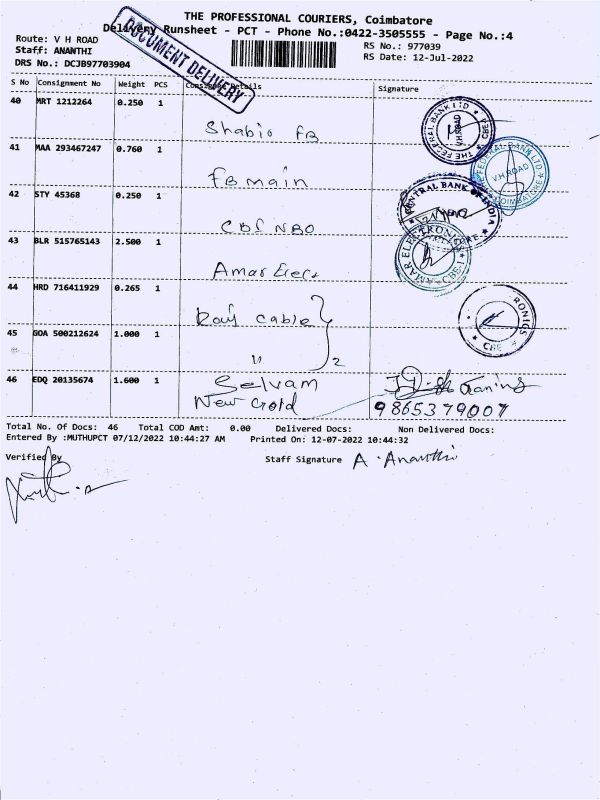 THE PROFESSIONAL COURIERS, Coimbatore
Delivery Runsheet - PCT - Phone No.:0422-3505555 - Page No.:4
Route: V H ROAD
Staff: ANANTHI
DRS No.: DCJB97703904
RS No.: 977039
RS Date: 12-Jul-2022
DOCUMENT DELIVERY
S No Consignment No Weight PCS Consignee Details Signature
40 MRT 1212264 0.250 1
Shabio FB
THE FEDERAL BANK LTD V.H.ROAD CBE
41 MAA 293467247 0.760 1
FB main
FEDERAL BANK LTD V.H.ROAD COIMBATORE
42 STY 45368 0.250 1
CBI NBO
CENTRAL BANK OF INDIA
43 BLR 515765143 2.500 1
Amar Elect
AMAR ELECTRONICS CBE-1
44 HRD 716411929 0.265 1
cable
RONICS CBE
45 GOA 500212624 1.000 1
" 2
46 EDQ 20135674 1.600 1
Selvam
New Gold
9865379007
Total No. Of Docs: 46 Total COD Amt: 0.00 Delivered Docs: Non Delivered Docs:
Entered By :MUTHUPCT 07/12/2022 10:44:27 AM Printed On: 12-07-2022 10:44:32
Verified By
Staff Signature A. Ananthi